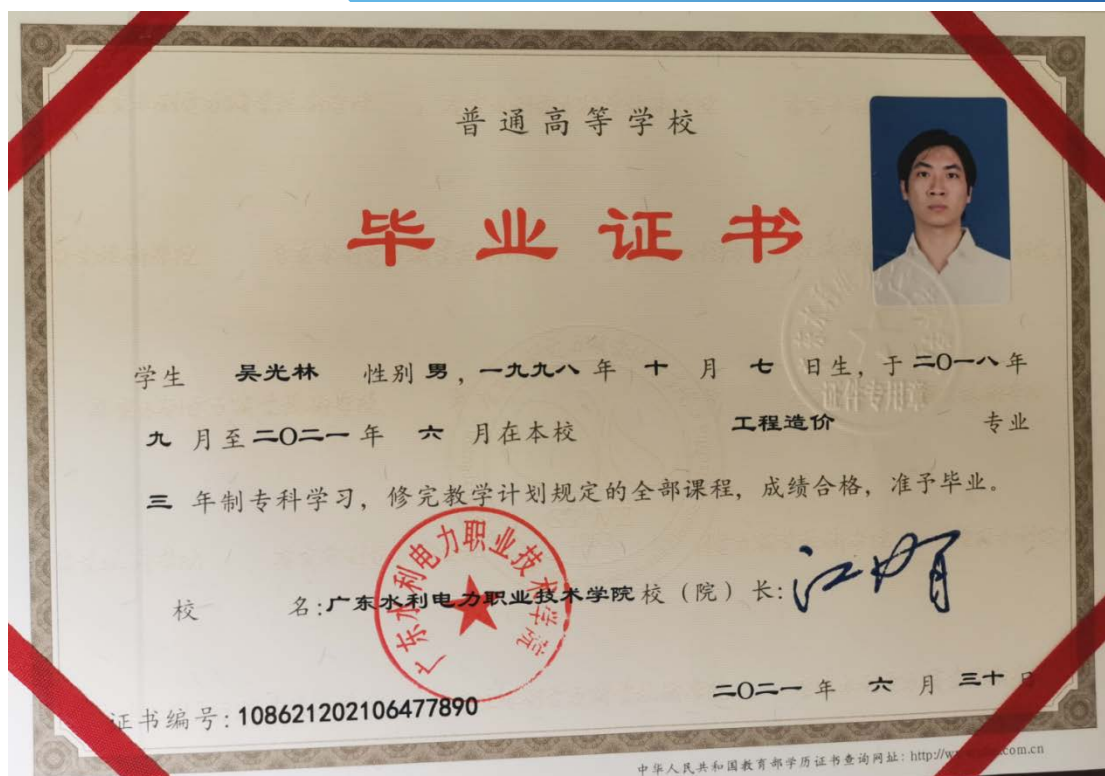 普通高等学校
毕业证书
学生 吴光林 性别 男，一九九八 年 十 月 七 日生，于 二〇一八 年
九 月至 二〇二一 年 六 月在本校 工程造价 专业
三 年制专科学习，修完教学计划规定的全部课程，成绩合格，准予毕业。
校 名：广东水利电力职业技术学院 校（院）长：
广东水利电力职业技术学院
证件专用章
二〇二一 年 六 月 三十 日
证书编号：108621202106477890
中华人民共和国教育部学历证书查询网址：http://w com.cn